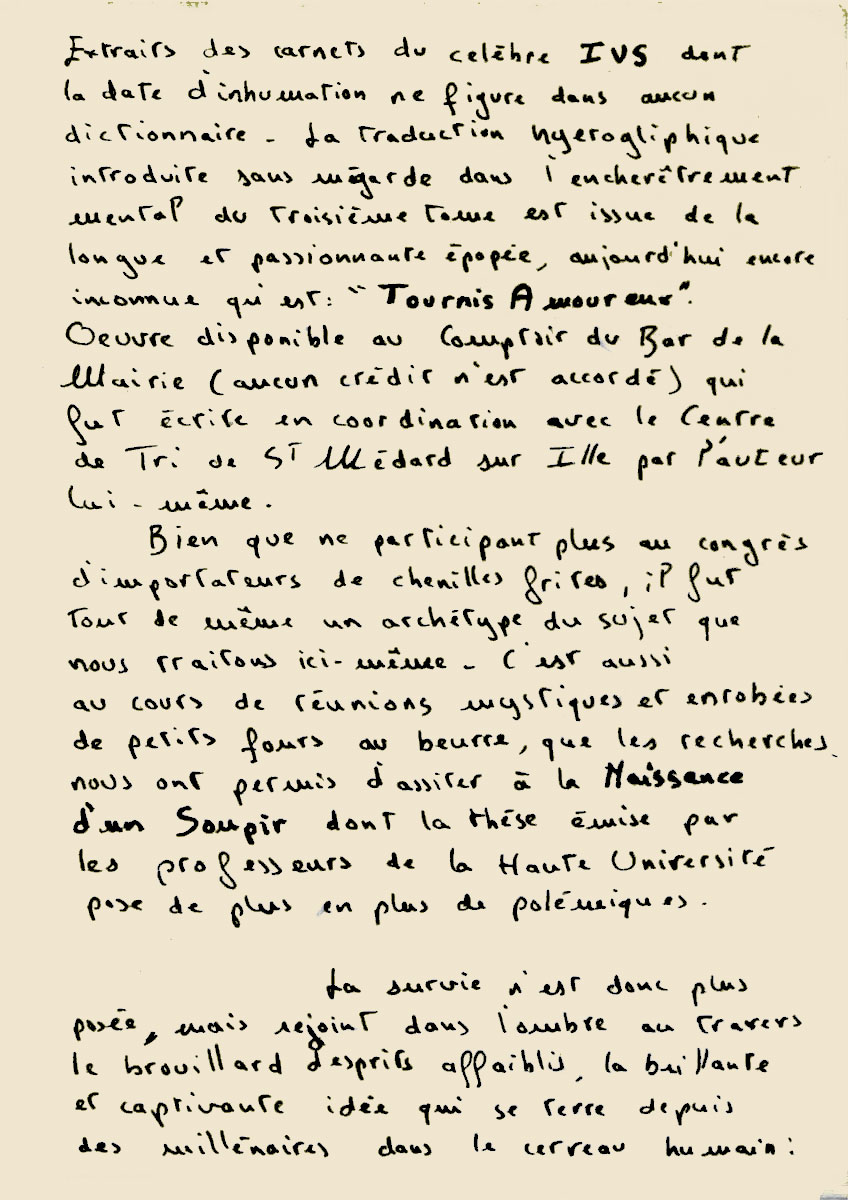 Extraits des carnets du celèbre IVS dont
la date d'inhumation ne figure dans aucun
dictionnaire - La traduction hyerogliphique
introduite sans mégarde dans l'encherêtrement
mental du troisième tome est issue de la
longue et passionnante épopée, aujourd'hui encore
inconnue qu'est: "Tournis Amoureux".
Oeuvre disponible au Comptoir du Bar de la
Mairie (aucun crédit n'est accordé) qui
fut écrite en coordination avec le Centre
de Tri de ST Médard sur Ille par l'auteur
lui-même.
Bien que ne participant plus au congrès
d'importateurs de chenilles frites, il fut
tout de même un archétype du sujet que
nous traitons ici-même - C'est aussi
au cours de réunions mystiques et enrobées
de petits fours au beurre, que les recherches
nous ont permis d'assiter à la Naissance
d'un Soupir dont la thése émise par
les professeurs de la Haute Université
pose de plus en plus de polémiques.
La survie n'est donc plus
posée, mais rejoint dans l'ombre au travers
le brouillard d'esprits affaiblis, la brillante
et captivante idée qui se terre depuis
des millénaires dans le cerveau humain: